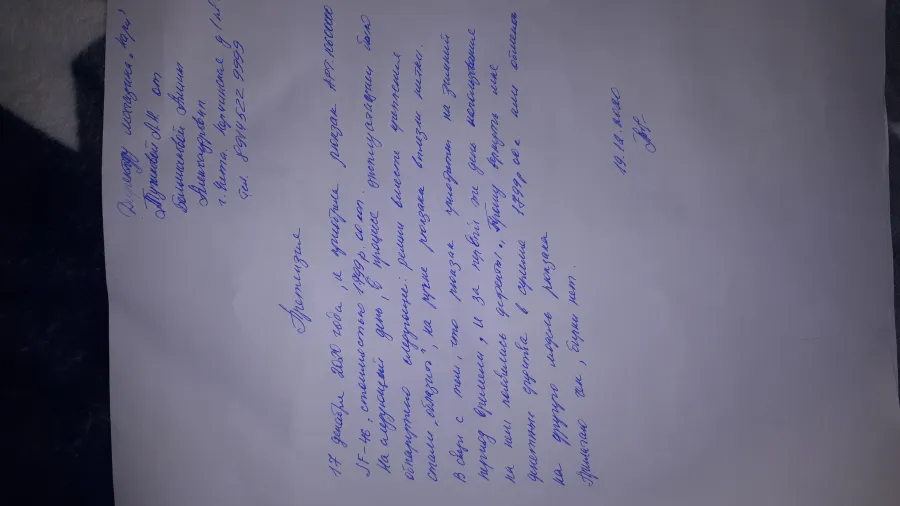 Директору магазина „Кари"
Тужиковой А.И. от
Алины
Александровны
г. Ухта.
тел. 8 904 522 9999
Претензия
17 декабря 2020 года, я приобрела рюкзак АРТ.
SF-46, стоимостью 1799 р. 00 коп.
На следующий день, в процессе эксплуатации было
обнаружено следующие: ремни вместе крепления
стали „облазить", на ручке рюкзака вылезли нитки.
В связи с тем, что рюкзак приобретен на зимний
период времени, и за первый же день использования
на нем появились дефекты. Прошу вернуть мне
денежные средства в сумме 1799 р или обмена
на другую модель рюкзака
Прилагаю чек, бирки нет.
19.12.2020